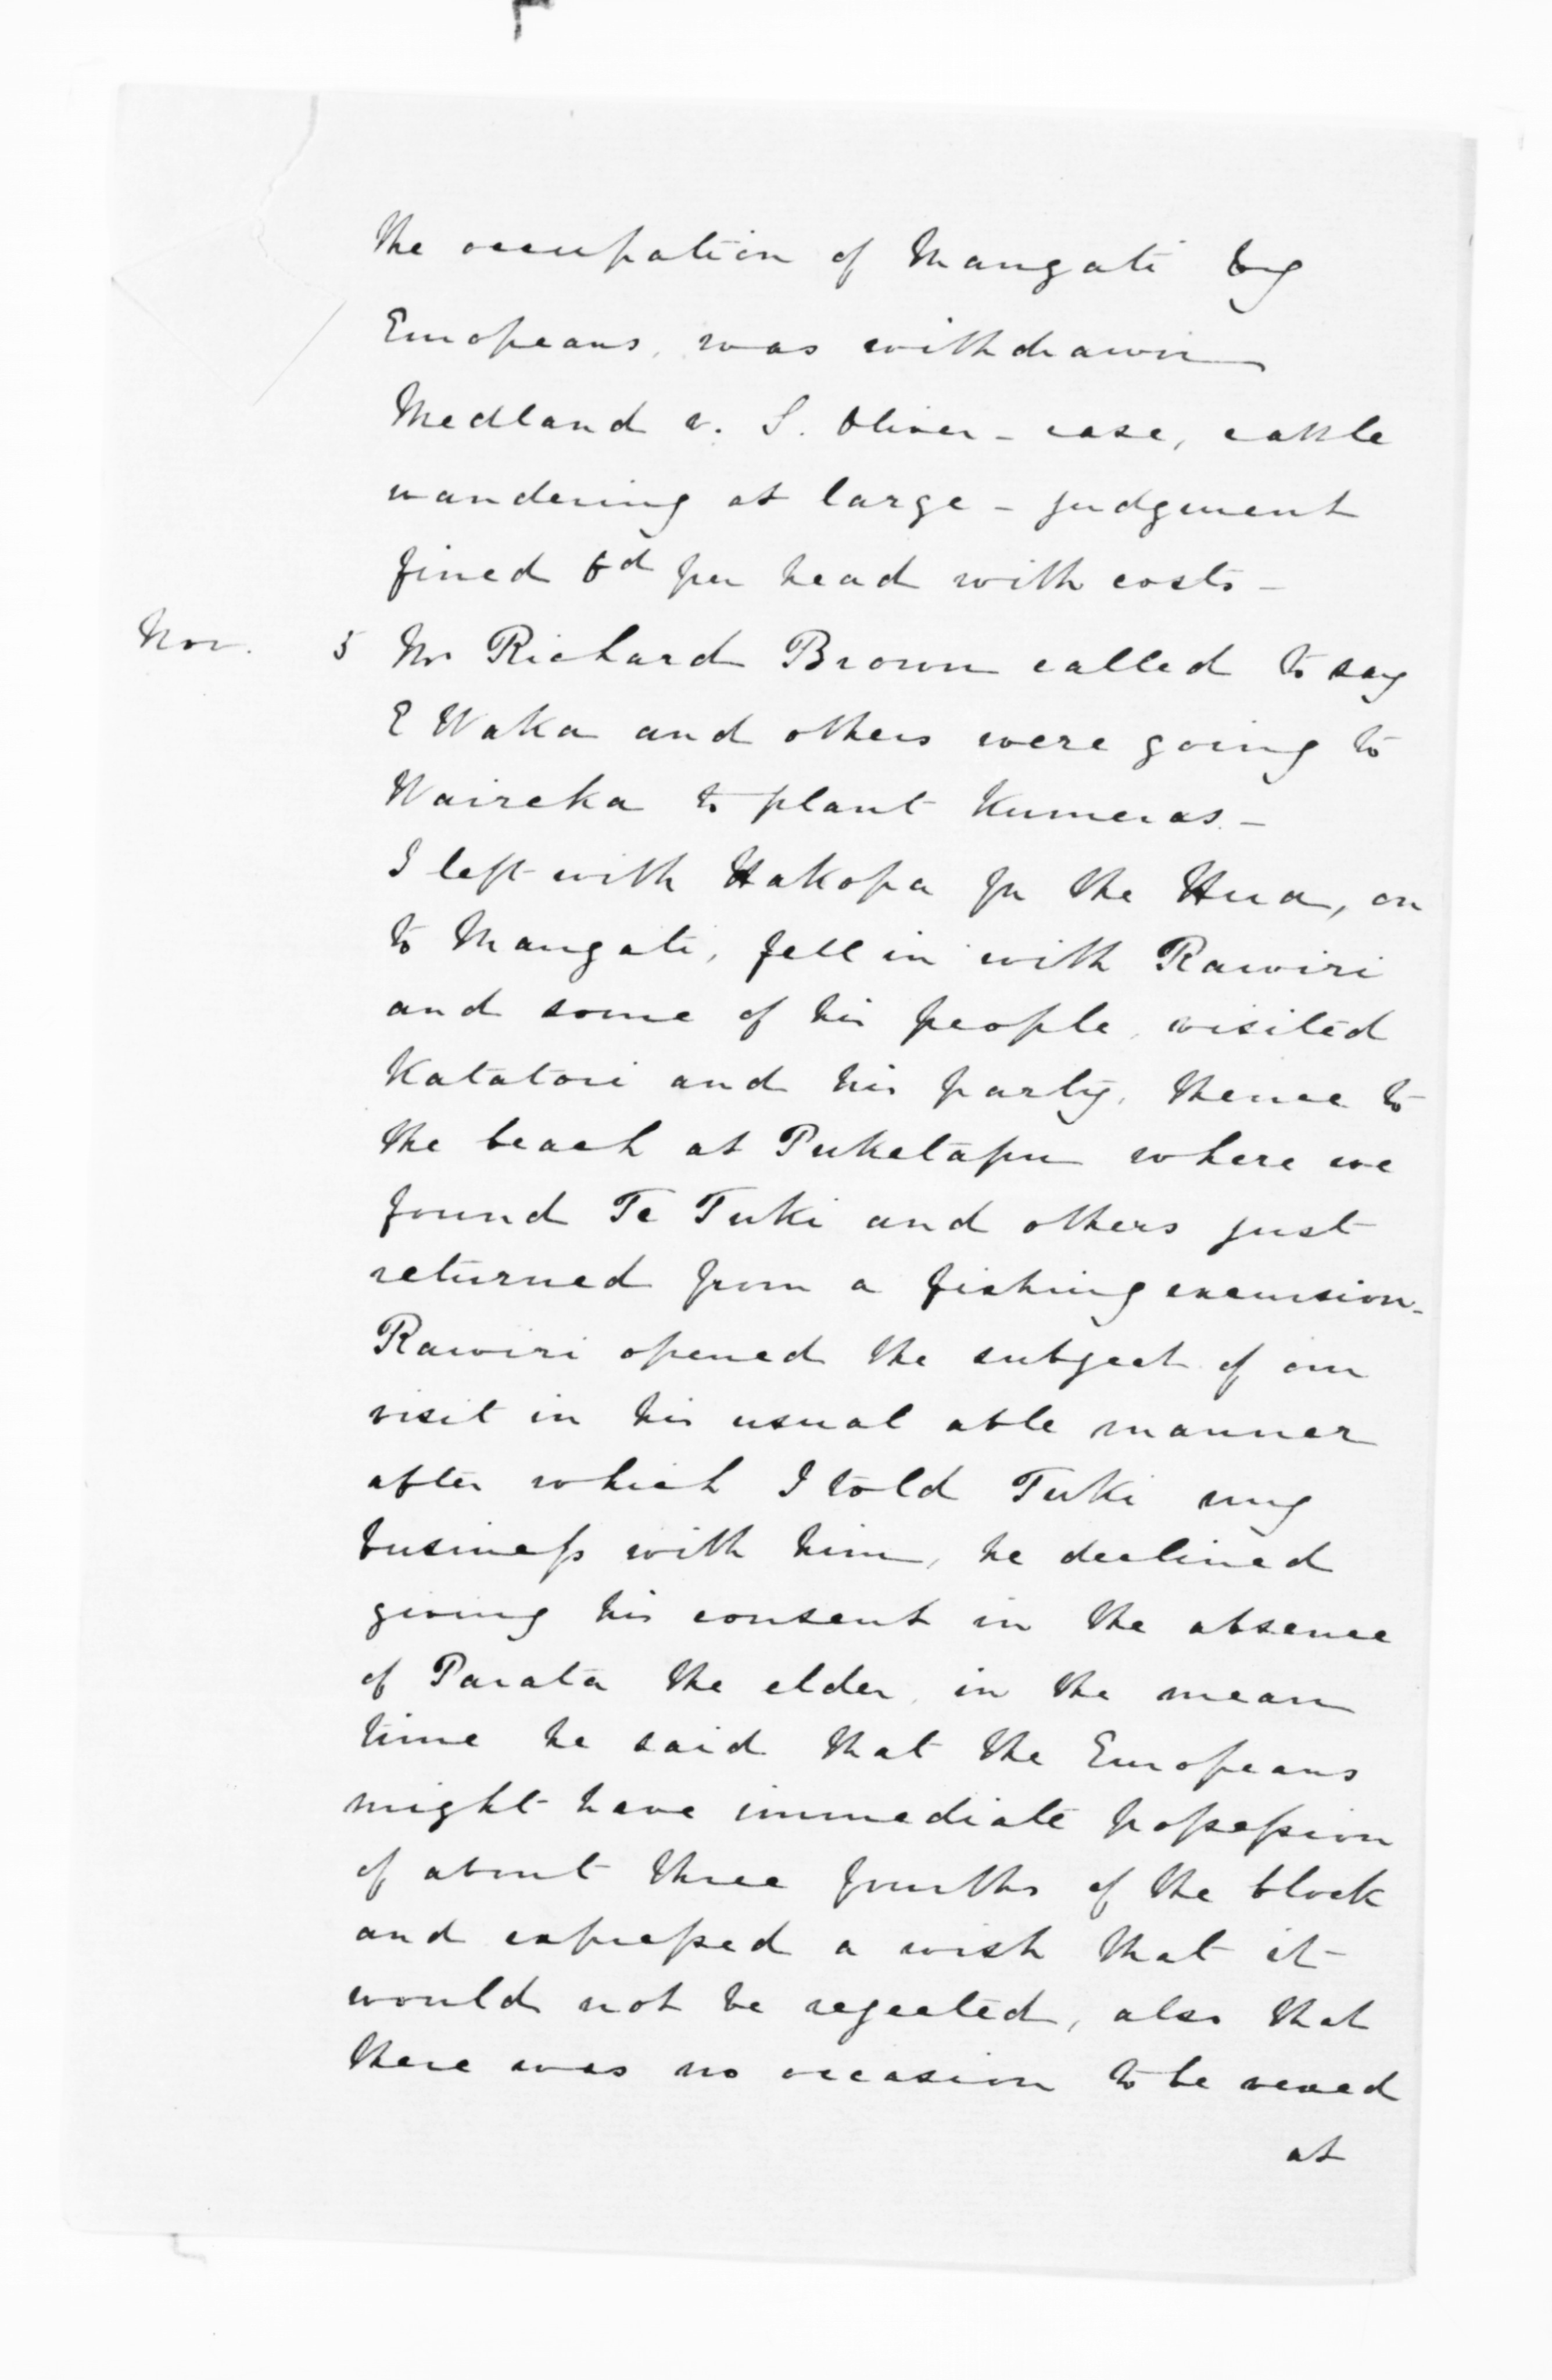 the occupation of Mangati by
Europeans, was withdrawn
Medland v. S. Oliver - case, cattle
wandering at large - judgment
fined 6d per head with costs -
Nov. 5 Mr Richard Brown called to say
E Waka and others were going to
Waireka to plant Kumeras. -
I left with Hakopa for the Hua, on
to Mangati, fell in with Rawiri
and some of his people, visited
Katatori and his party, thence to
the beach at Puketapu where we
found Te Tuki and others just
returned from a fishing excursion -
Rawiri opened the subject of our
visit in his usual able manner
after which I told Tuki my
business with him, he declined
giving his consent in the absence
of Parata the elder, in the mean
time he said that the Europeans
might have immediate possession
of about three fourths of the block
and expressed a wish that it
would not be rejected, also that
there was no occasion to be vexed
at